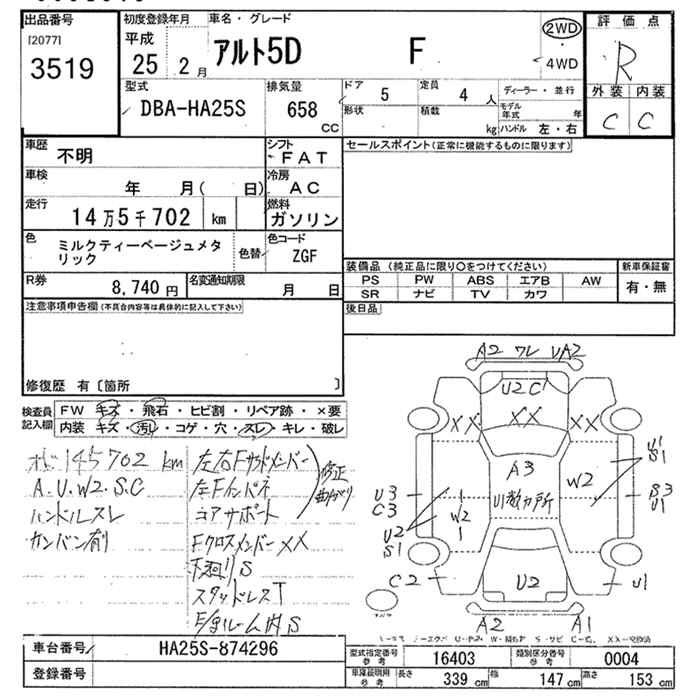 出品番号
[2077]
3519
初度登録年月
平成
25 2 月
車名・グレード
アルト5D F
2WD
4WD
評価点
R
外装 内装
C C
型式
DBA-HA25S
排気量
658
cc
ドア
5
定員
4 人
ディーラー・並行
形状
積載
kg
モデル年式
年
ハンドル 左・右
車歴
不明
シフト
FAT
セールスポイント(正常に機能するものに限ります)
車検
年 月( 日)
冷房
AC
走行
14万5千702 km
燃料
ガソリン
色
ミルクティーベージュメタ
リック
色替
色コード
ZGF
装備品(純正品に限り○をつけてください)
新車保証書
PS PW ABS エアB AW
SR ナビ TV カワ
有・無
R券
8,740 円
名変通知期限
月 日
後日品
注意事項申告欄(不具合内容等は具体的に記入して下さい)
修復歴 有〔箇所 〕
検査員
記入欄
FW キズ・飛石・ヒビ割・リペア跡・×要
内装 キズ・汚レ・コゲ・穴・スレ・キレ・破レ
145702 km
A.U.W2.S.C
ハンドルスレ
カンバン有リ
左右Fサイドメンバー
左Fインパネ
コアサポート
修正
曲がり
Fクロスメンバー XX
下廻リS
スタッドレスT
E/gルーム内S
A2 ワレ UA2
U2 C
XX XX XX
A3
U1数カ所
W2
U1
S1
U3
C3
W2
1
S3
U1
U2
S1
C2
U2
U1
A2 A1
車台番号
HA25S-874296
登録番号
型式指定番号
参考
16403
類別区分番号
参考
0004
車庫証明用
参考
長さ
339 cm
幅
147 cm
高さ
153 cm